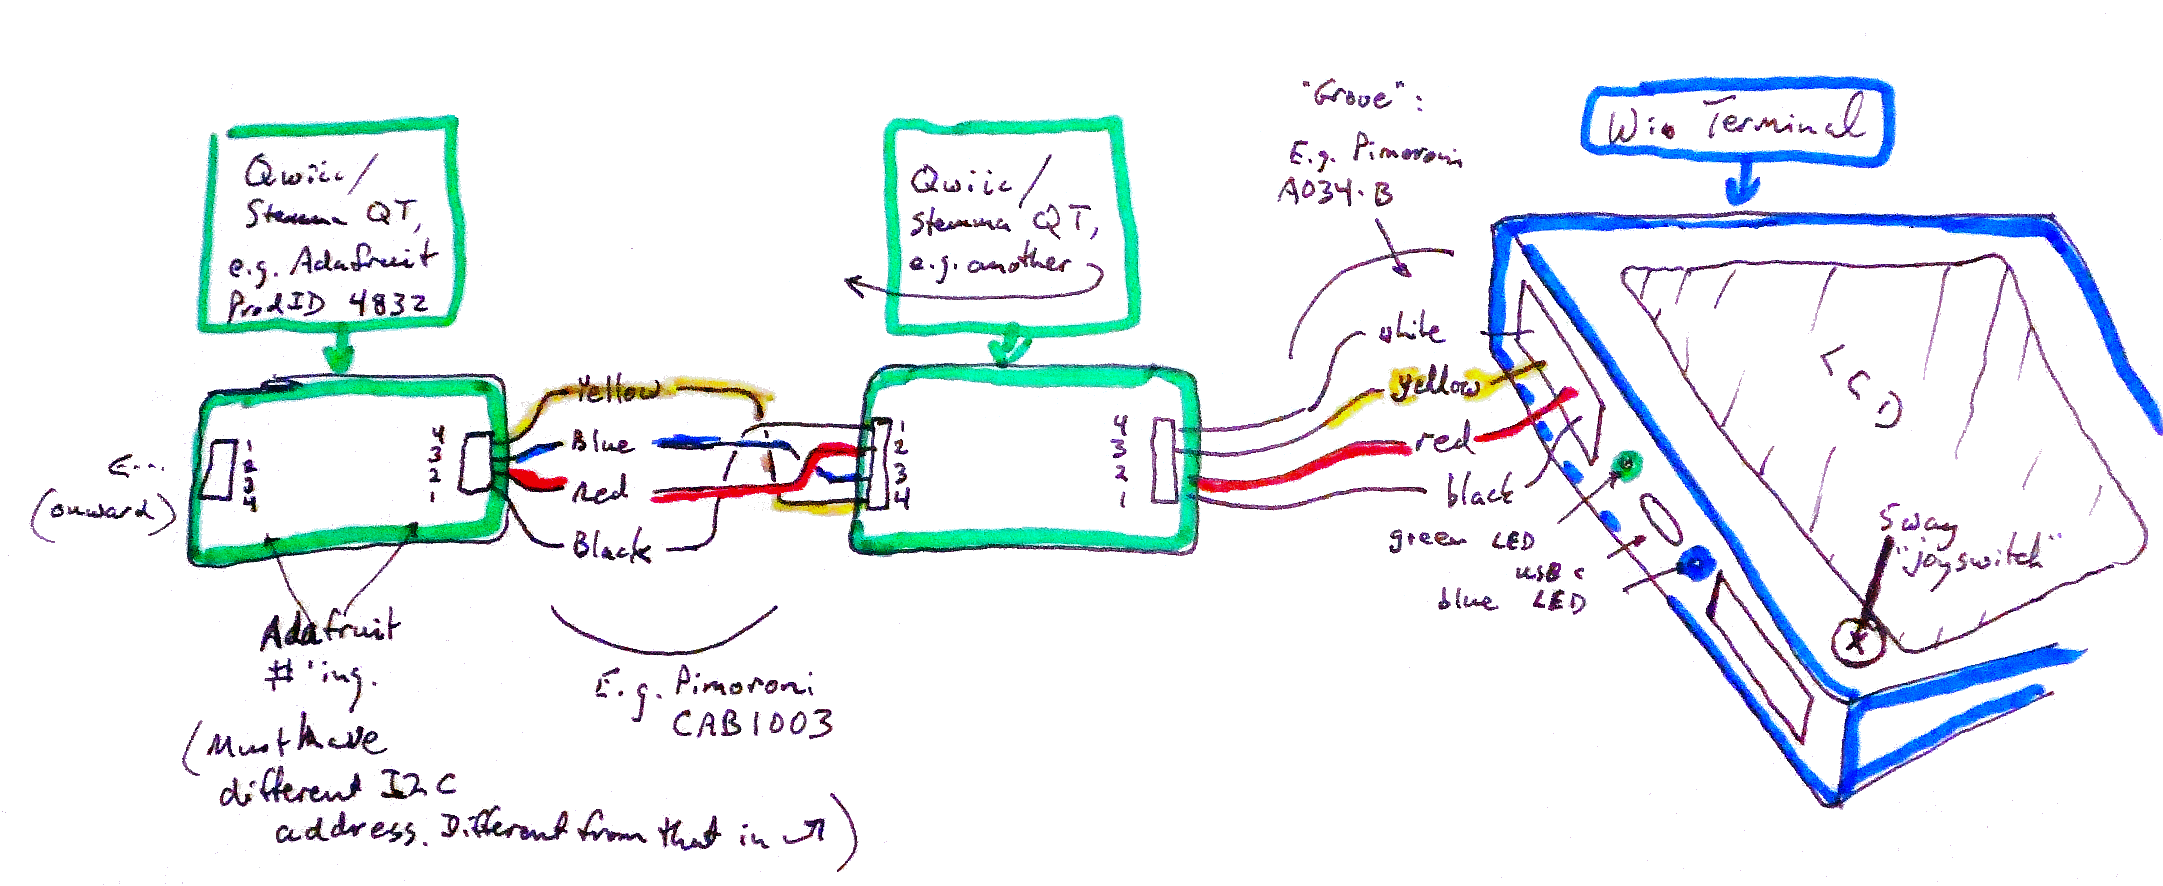 "Grove":
E.g. Pimoroni
A034-B
Wio Terminal
Qwiic/
Stemma QT,
e.g. Adafruit
ProdID 4832
Qwiic/
Stemma QT,
e.g. another
white
yellow
red
black
LCD
5 way
"joyswitch"
green LED
USB c
blue LED
Yellow
Blue
red
Black
1
2
3
4
4
3
2
1
1
2
3
4
4
3
2
1
←...
(onward)
Adafruit
#'ing.
E.g. Pimoroni
CAB1003
(Must have
different I2C
address. Different from that in ↗)